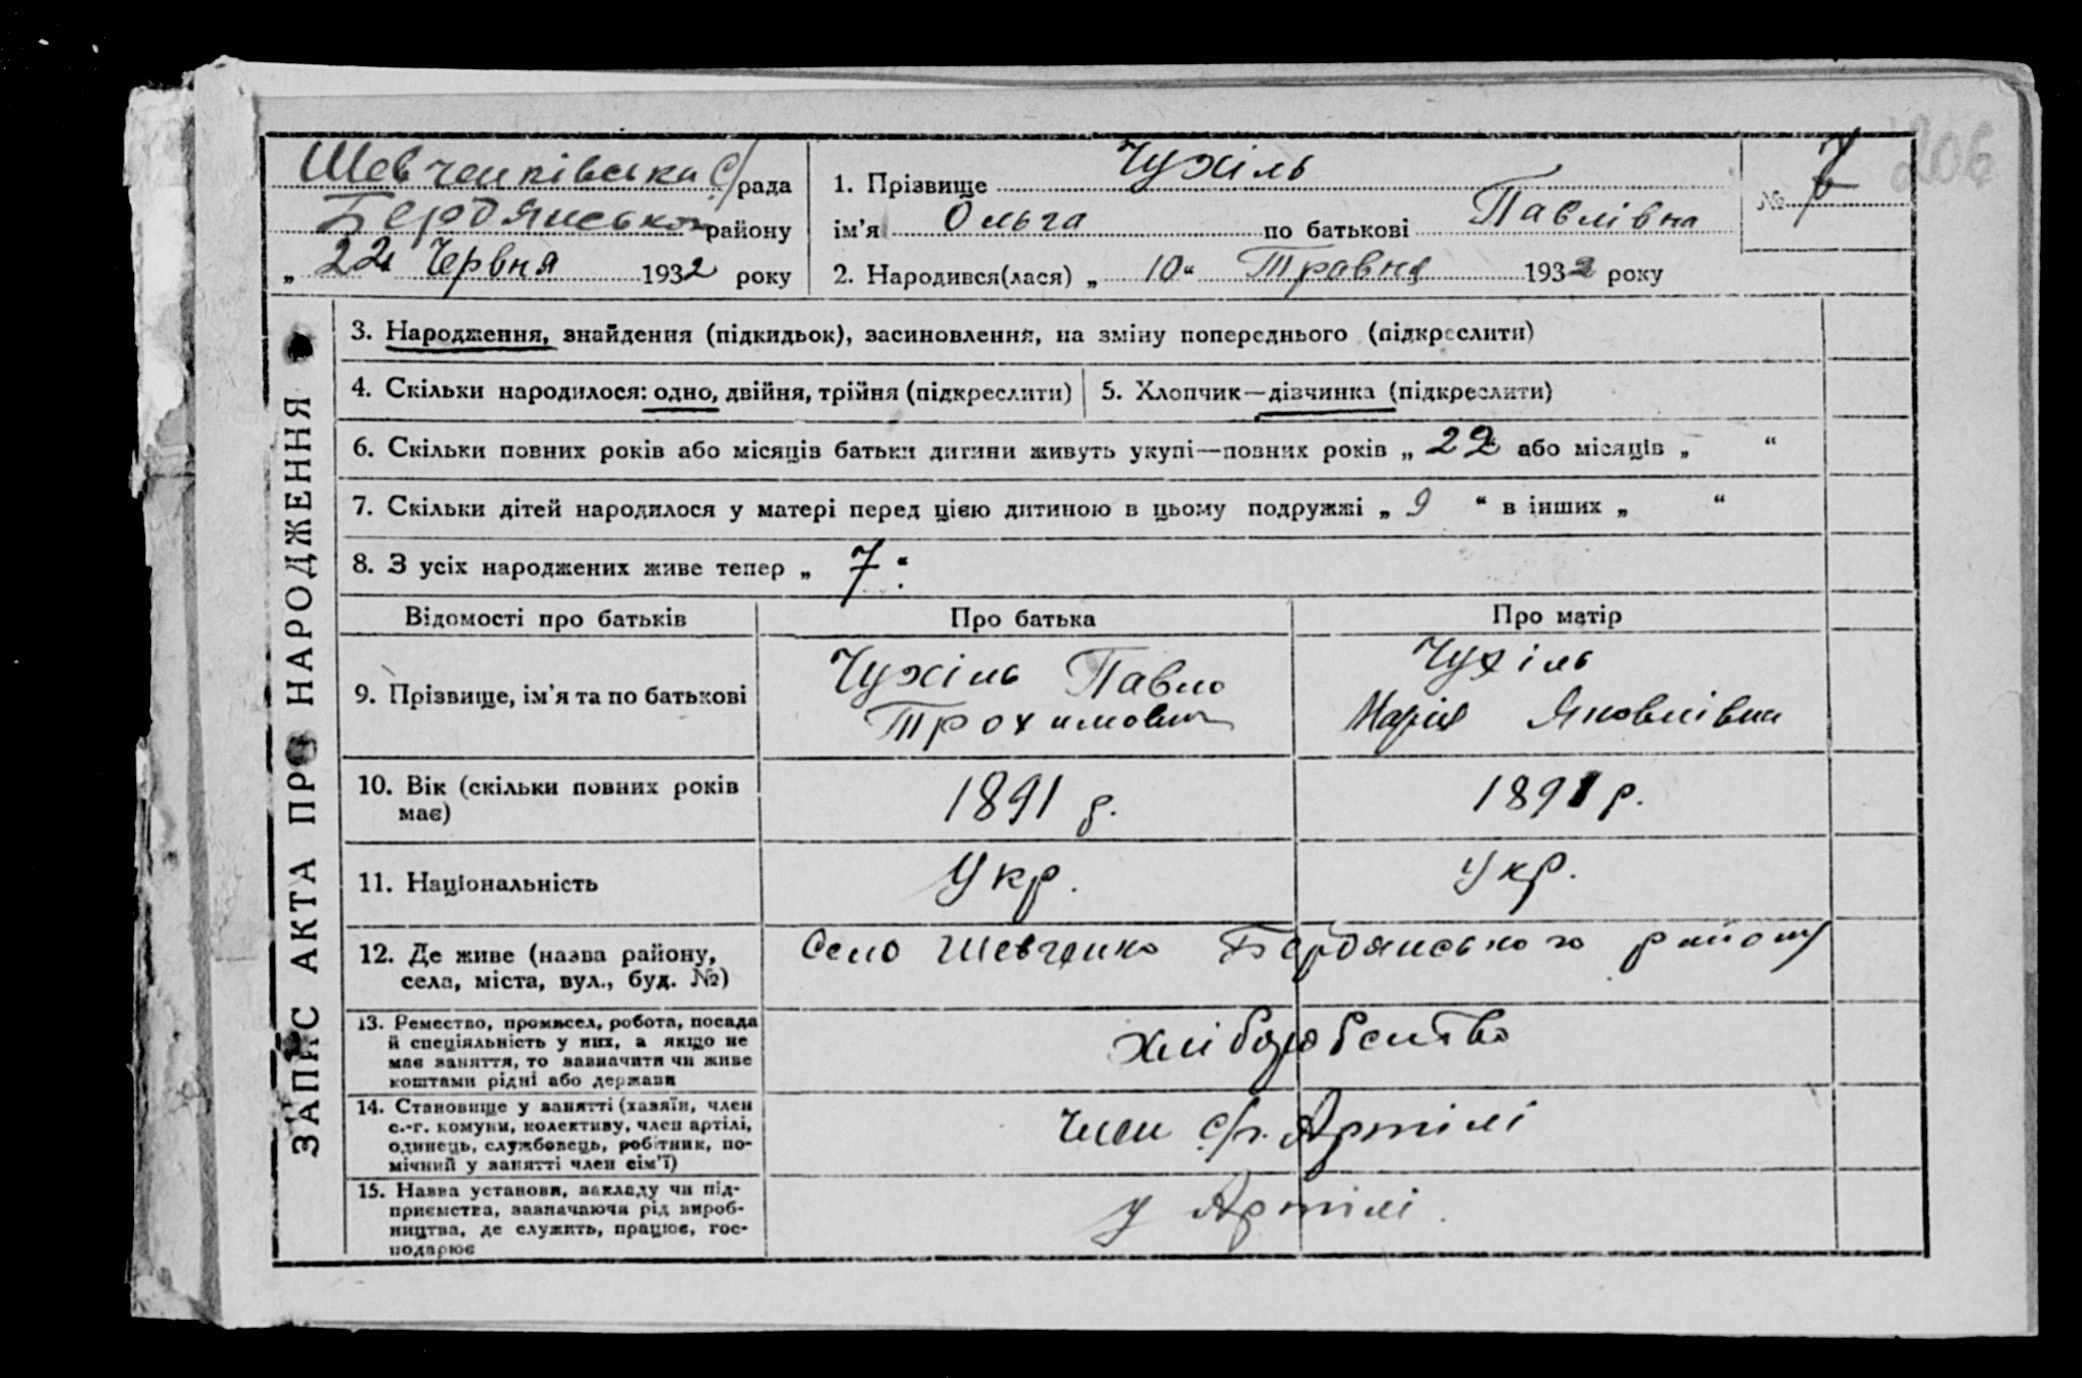 206
Шевченківська с/рада
Бердянського району
„ 22 Червня 1932 року
1. Прізвище Чухіль
ім’я Ольга по батькові Павлівна
2. Народився(лася) „ 10 “ Травня 1932 року
№ 7
ЗАПИС АКТА ПРО НАРОДЖЕННЯ
3. Народження, знайдення (підкидьок), засиновлення, на зміну попереднього (підкреслити)
4. Скільки народилося: одно, двійня, трійня (підкреслити)
5. Хлопчик—дівчинка (підкреслити)
6. Скільки повних років або місяців батьки дитини живуть укупі—повних років „ 22 “ або місяців „ “
7. Скільки дітей народилося у матері перед цією дитиною в цьому подружжі „ 9 “ в інших „ “
8. З усіх народжених живе тепер „ 7 “.
Відомості про батьків
Про батька
Про матір
9. Прізвище, ім’я та по батькові
Чухіль Павло
Трохимович
Чухіль
Марія Яковлівна
10. Вік (скільки повних років
має)
1891 р.
1891 р.
11. Національність
Укр.
Укр.
12. Де живе (назва району,
села, міста, вул., буд. №)
Село Шевченко Бердянського району
13. Ремество, промисел, робота, посада
й спеціяльність у них, а якщо не
має заняття, то зазначити чи живе
коштами рідні або держави
хліборобство
14. Становище у занятті (хазяїн, член
с.-г. комуни, колективу, член артілі,
одинець, службовець, робітник, по-
мічний у занятті член сім’ї)
член с/г. Артілі
15. Назва установи, закладу чи під-
приємства, зазначаючи рід вироб-
ництва, де служить, працює, гос-
подарює
у Артілі.